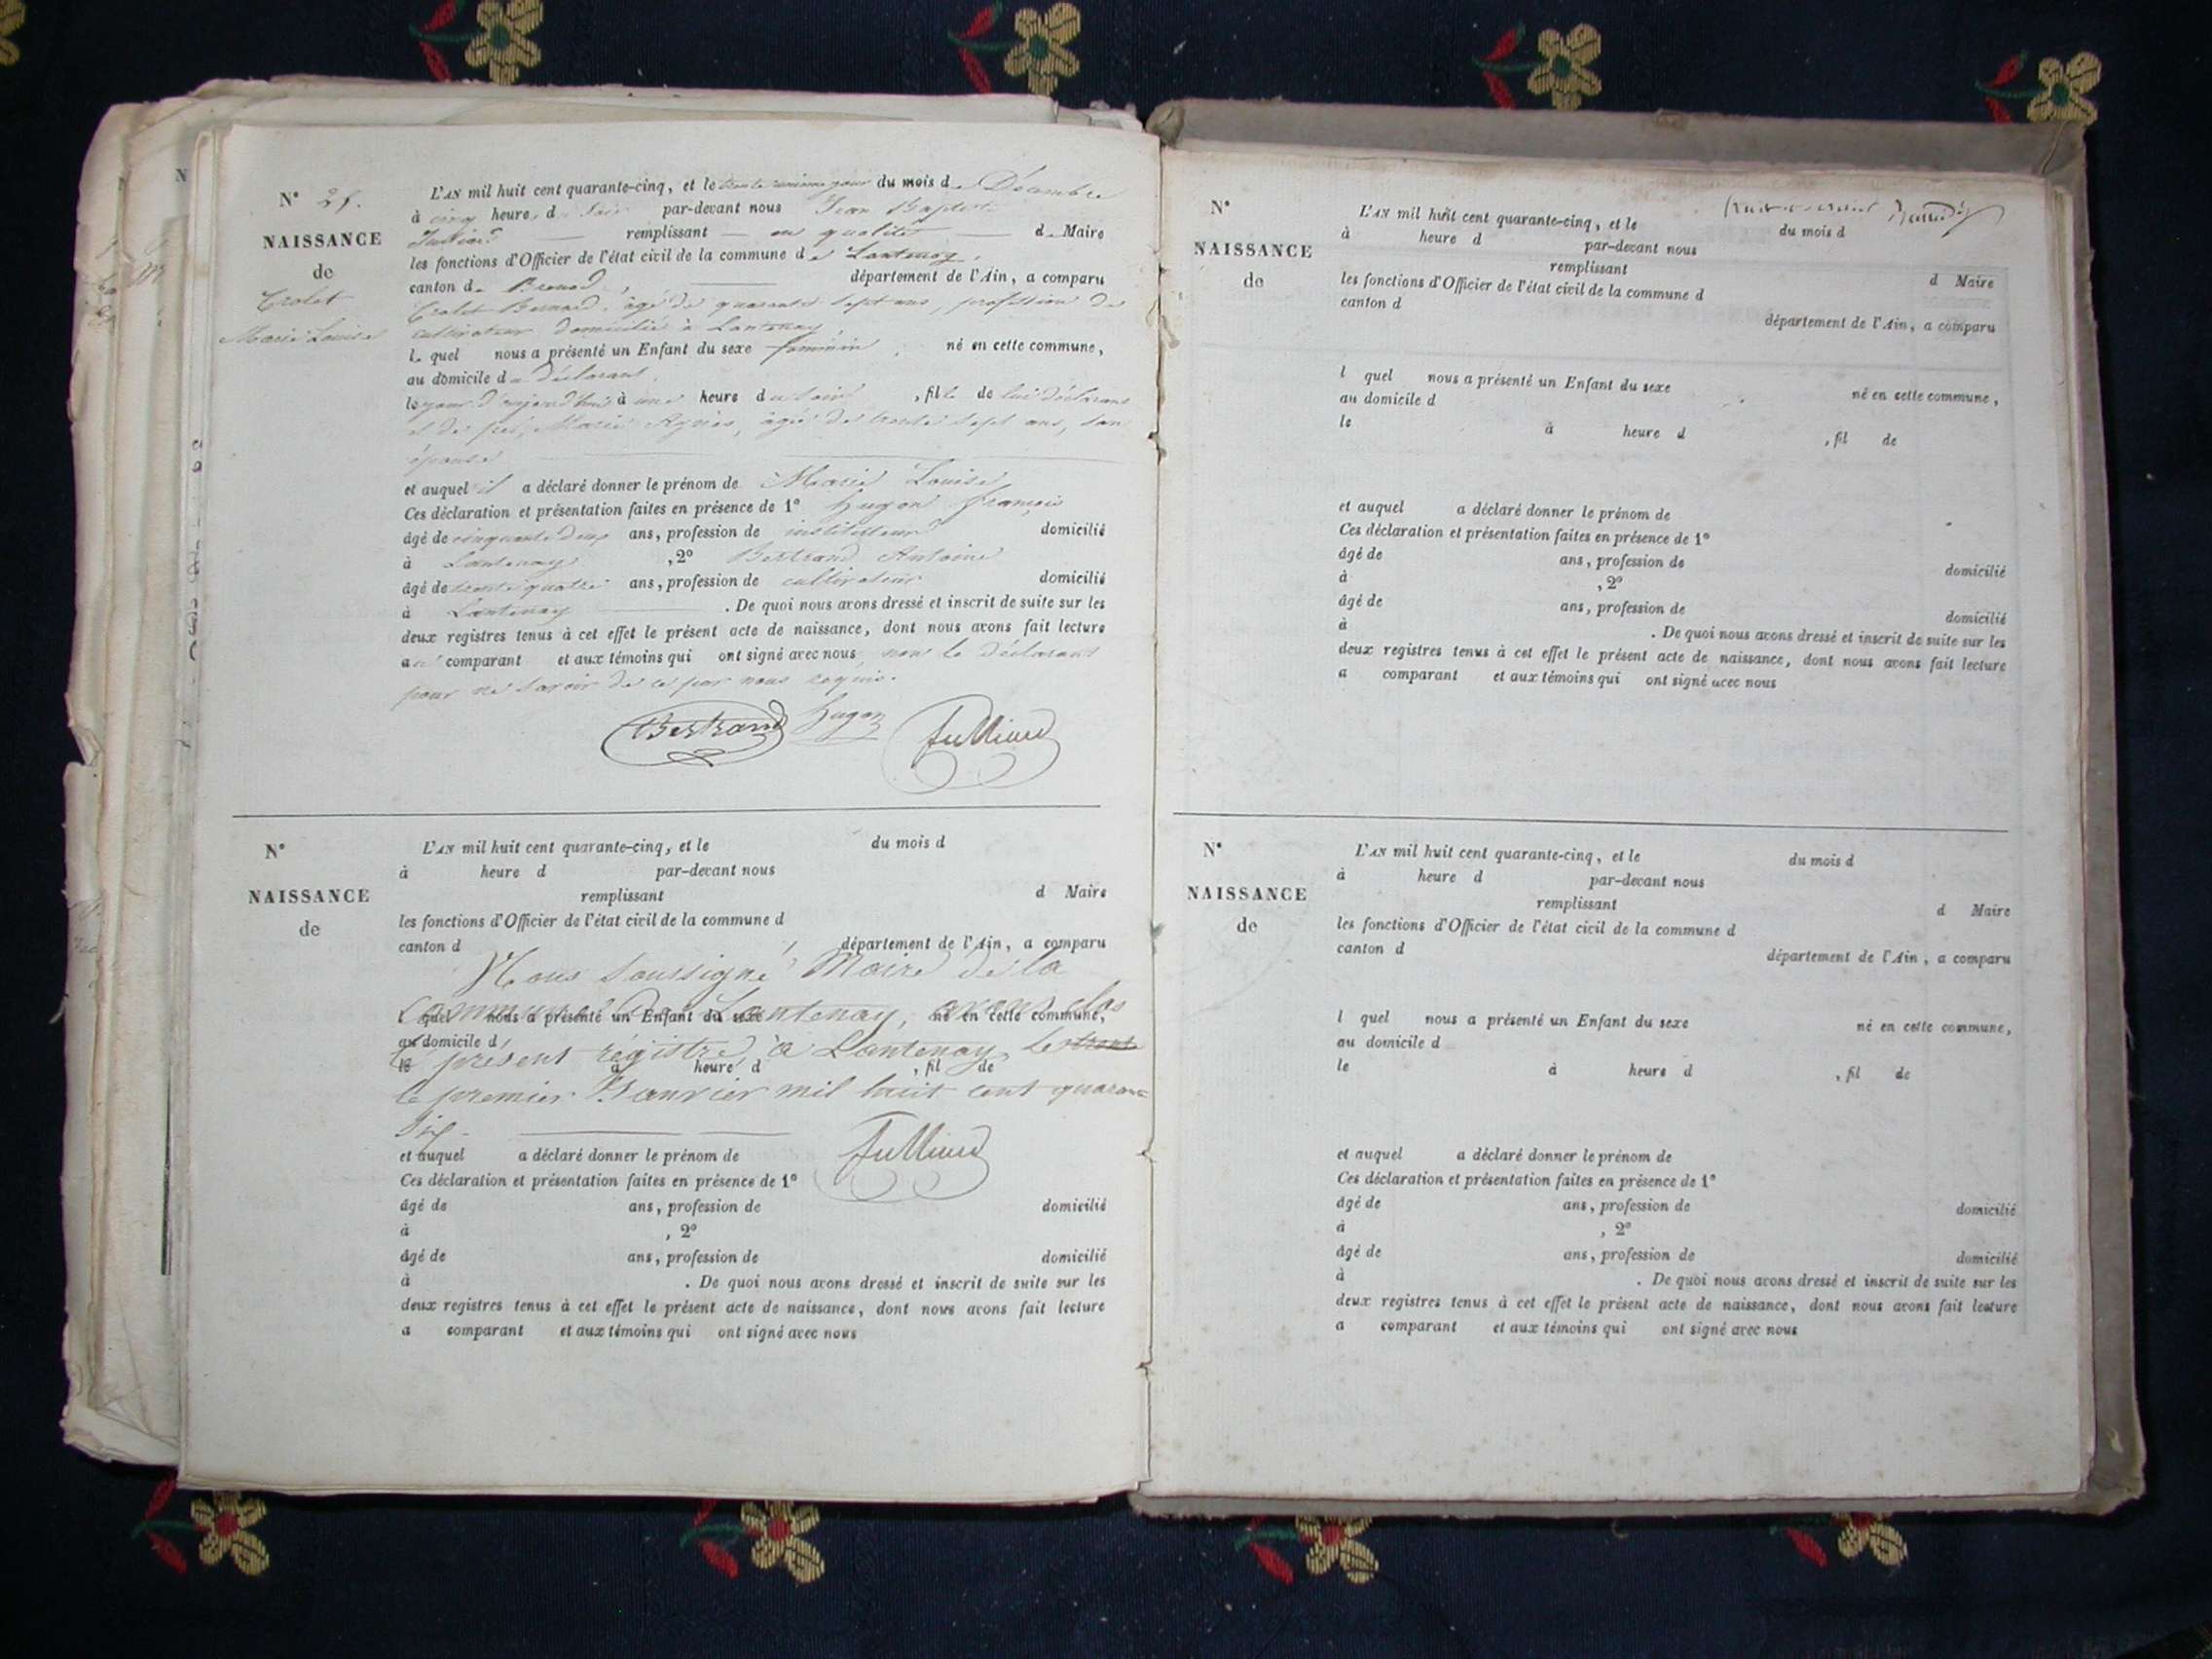 N° 25.
NAISSANCE
de
Crolet
Marie Louise
L'AN mil huit cent quarante-cinq, et le trente unième jour du mois de Décembre
à cinq heure, du Soir par-devant nous Jean Baptiste
Jullierd remplissant en qualité de Maire
les fonctions d'Officier de l'état civil de la commune de Lantenay,
canton de Brenod, département de l'Ain, a comparu
Crolet Bernard, âgé de quarante sept ans, profession de
cultivateur domicilié à Lantenay,
Le quel nous a présenté un Enfant du sexe féminin, né en cette commune,
au domicile du déclarant,
le jour d'aujourd'hui à une heure du soir, fille de lui déclarant
et de Marie Agnès, âgée de trente sept ans, son
épouse
et auquel il a déclaré donner le prénom de Marie Louise
Ces déclaration et présentation faites en présence de 1° hugon françois
âgé de cinquante deux ans, profession de instituteur domicilié
à Lantenay, 2° Bertrand Antoine
âgé de trente quatre ans, profession de cultivateur domicilié
à Lantenay. De quoi nous avons dressé et inscrit de suite sur les
deux registres tenus à cet effet le présent acte de naissance, dont nous avons fait lecture
au comparant et aux témoins qui ont signé avec nous, non le déclarant
pour ne savoir de ce par nous requis.
Bertrand hugon Jullierd
N°
NAISSANCE
de
L'AN mil huit cent quarante-cinq, et le du mois d
à heure d par-devant nous
remplissant d Maire
les fonctions d'Officier de l'état civil de la commune d
canton d , département de l'Ain, a comparu
Nous soussigné Maire de la
commune de Lantenay, avons clos
l quel nous a présenté un Enfant du sexe né en cette commune,
au domicile d
le présent régistre, à Lantenay, le trente
le à heure d , fil de
le premier Janvier mil huit cent quarante
Six.
Jullierd
et auquel a déclaré donner le prénom de
Ces déclaration et présentation faites en présence de 1°
âgé de ans, profession de domicilié
à , 2°
âgé de ans, profession de domicilié
à . De quoi nous avons dressé et inscrit de suite sur les
deux registres tenus à cet effet le présent acte de naissance, dont nous avons fait lecture
a comparant et aux témoins qui ont signé avec nous
N°
NAISSANCE
de
L'AN mil huit cent quarante-cinq, et le du mois d
à heure d par-devant nous
remplissant d Maire
les fonctions d'Officier de l'état civil de la commune d
canton d
département de l'Ain, a comparu
l quel nous a présenté un Enfant du sexe né en cette commune,
au domicile d
le à heure d , fil de
et auquel a déclaré donner le prénom de
Ces déclaration et présentation faites en présence de 1°
âgé de ans, profession de domicilié
à , 2°
âgé de ans, profession de domicilié
à . De quoi nous avons dressé et inscrit de suite sur les
deux registres tenus à cet effet le présent acte de naissance, dont nous avons fait lecture
a comparant et aux témoins qui ont signé avec nous
N°
NAISSANCE
de
L'AN mil huit cent quarante-cinq, et le du mois d
à heure d par-devant nous
remplissant d Maire
les fonctions d'Officier de l'état civil de la commune d
canton d
département de l'Ain, a comparu
l quel nous a présenté un Enfant du sexe né en cette commune,
au domicile d
le à heure d , fil de
et auquel a déclaré donner le prénom de
Ces déclaration et présentation faites en présence de 1°
âgé de ans, profession de domicilié
à , 2°
âgé de ans, profession de domicilié
à . De quoi nous avons dressé et inscrit de suite sur les
deux registres tenus à cet effet le présent acte de naissance, dont nous avons fait lecture
a comparant et aux témoins qui ont signé avec nous